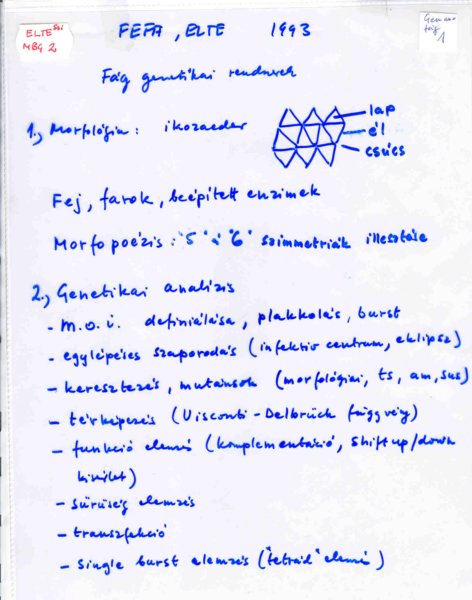 ELTE
MBG 2
FEFA, ELTE 1993
1
Fág genetikai rendszerek
1., Morfológia: ikozaeder
lap
él
csúcs
Fej, farok, beépített enzimek
Morfopoézis: "5" és "6" szimmetriák illesztése
2., Genetikai analízis
- m.o.i. definiálása, plakkolás, burst
- egylépéses szaporodás (infektív centrum, eklipsz)
- keresztezés, mutánsok (morfológiai, ts, am, sus)
- térképezés (Visconti-Delbrück függvény)
- funkció elemzés (komplementáció, shift up/down
kísérlet)
- sűrűség elemzés
- transzfekció
- single burst elemzés ("tetrád" elemzés)